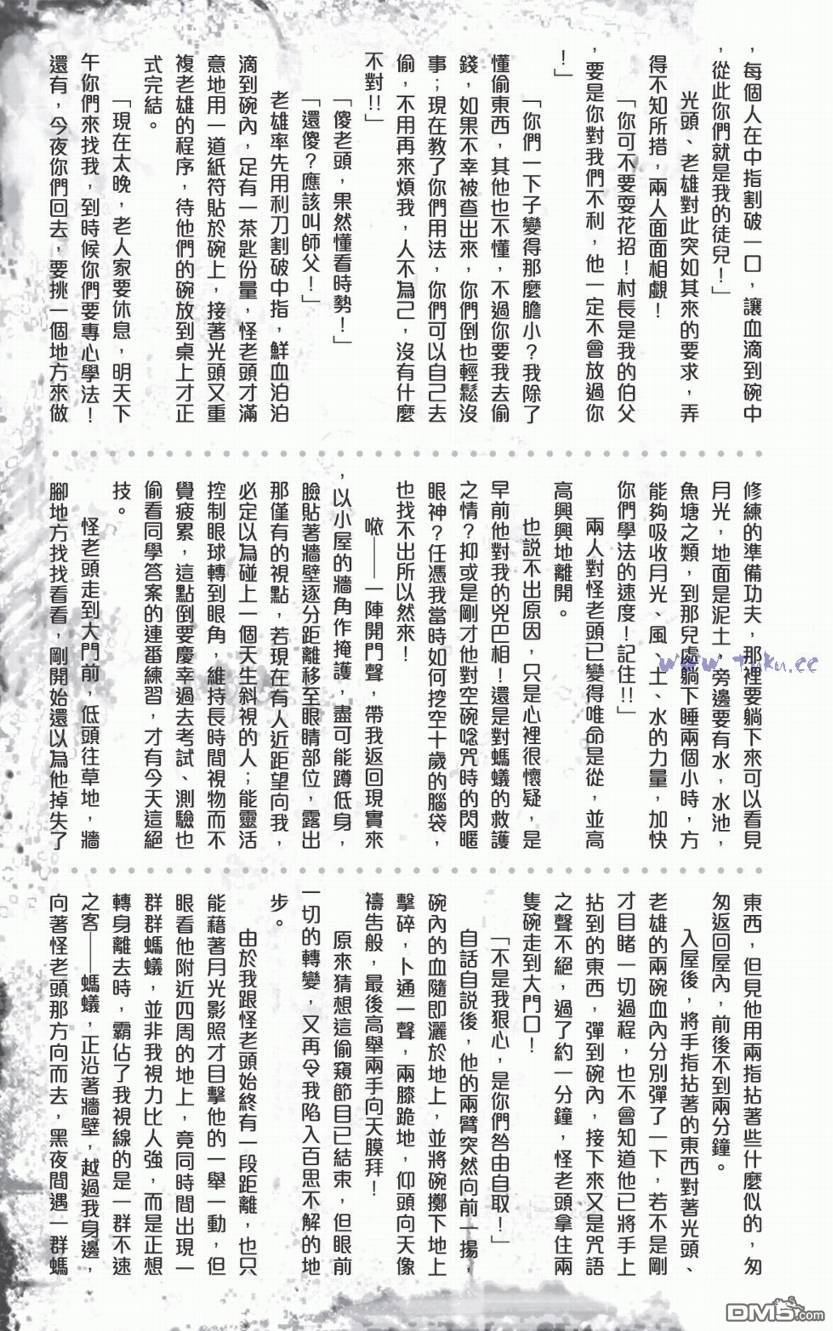 ，每個人在中指割破一口，讓血滴到碗中
，從此你們就是我的徒兒！」
光頭、老雄對此突如其來的要求，弄
得不知所措，兩人面面相覷！
「你可不要耍花招！村長是我的伯父
，要是你對我們不利，他一定不會放過你
！」
「你們一下子變得那麼膽小？我除了
懂偷東西，其他也不懂，不過你要我去偷
錢，如果不幸被查出來，你們倒也輕鬆沒
事；現在教了你們用法，你們可以自己去
偷，不用再來煩我，人不為己，沒有什麼
不對!!」
「傻老頭，果然懂看時勢！」
「還傻？應該叫師父！」
老雄率先用利刀割破中指，鮮血泊泊
滴到碗內，足有一茶匙份量，怪老頭才滿
意地用一道紙符貼於碗上，接著光頭又重
複老雄的程序，待他們的碗放到桌上才正
式完結。
「現在太晚，老人家要休息，明天下
午你們來找我，到時候你們要專心學法！
還有，今夜你們回去，要挑一個地方來做
修練的準備功夫，那裡要躺下來可以看見
月光，地面是泥土，旁邊要有水，水池，
魚塘之類，到那兒處躺下睡兩個小時，方
能夠吸收月光、風、土、水的力量，加快
你們學法的速度！記住!!」
兩人對怪老頭已變得唯命是從，並高
高興興地離開。
也說不出原因，只是心裡很懷疑，是
早前他對我的兇巴相！還是對螞蟻的救護
之情？抑或是剛才他對空碗唸咒時的閃暱
眼神？任憑我當時如何挖空十歲的腦袋，
也找不出所以然來！
咿——一陣開門聲，帶我返回現實來
，以小屋的牆角作掩護，盡可能蹲低身，
臉貼著牆壁逐分距離移至眼睛部位，露出
那僅有的視點，若現在有人近距望向我，
必定以為碰上一個天生斜視的人；能靈活
控制眼球轉到眼角，維持長時間視物而不
覺疲累，這點倒要慶幸過去考試、測驗也
偷看同學答案的連番練習，才有今天這絕
技。
怪老頭走到大門前，低頭往草地，牆
腳地方找找看看，剛開始還以為他掉失了
東西，但見他用兩指拈著些什麼似的，匆
匆返回屋內，前後不到兩分鐘。
入屋後，將手指拈著的東西對著光頭、
老雄的兩碗血內分別彈了一下，若不是剛
才目睹一切過程，也不會知道他已將手上
拈到的東西，彈到碗內，接下來又是咒語
之聲不絕，過了約一分鐘，怪老頭拿住兩
隻碗走到大門口！
「不是我狠心，是你們咎由自取！」
自話自說後，他的兩臂突然向前一揚，
碗內的血隨即灑於地上，並將碗擲下地上
擊碎，卜通一聲，兩膝跪地，仰頭向天像
禱告般，最後高舉兩手向天膜拜！
原來猜想這偷窺節目已結束，但眼前
一切的轉變，又再令我陷入百思不解的地
步。
由於我跟怪老頭始終有一段距離，也只
能藉著月光影照才目擊他的一舉一動，但
眼看他附近四周的地上，竟同時間出現一
群群螞蟻，並非我視力比人強，而是正想
轉身離去時，霸佔了我視線的是一群不速
之客——螞蟻，正沿著牆壁，越過我身邊，
向著怪老頭那方向而去，黑夜間遇一群螞
www.Tuku.cc
DM5.com